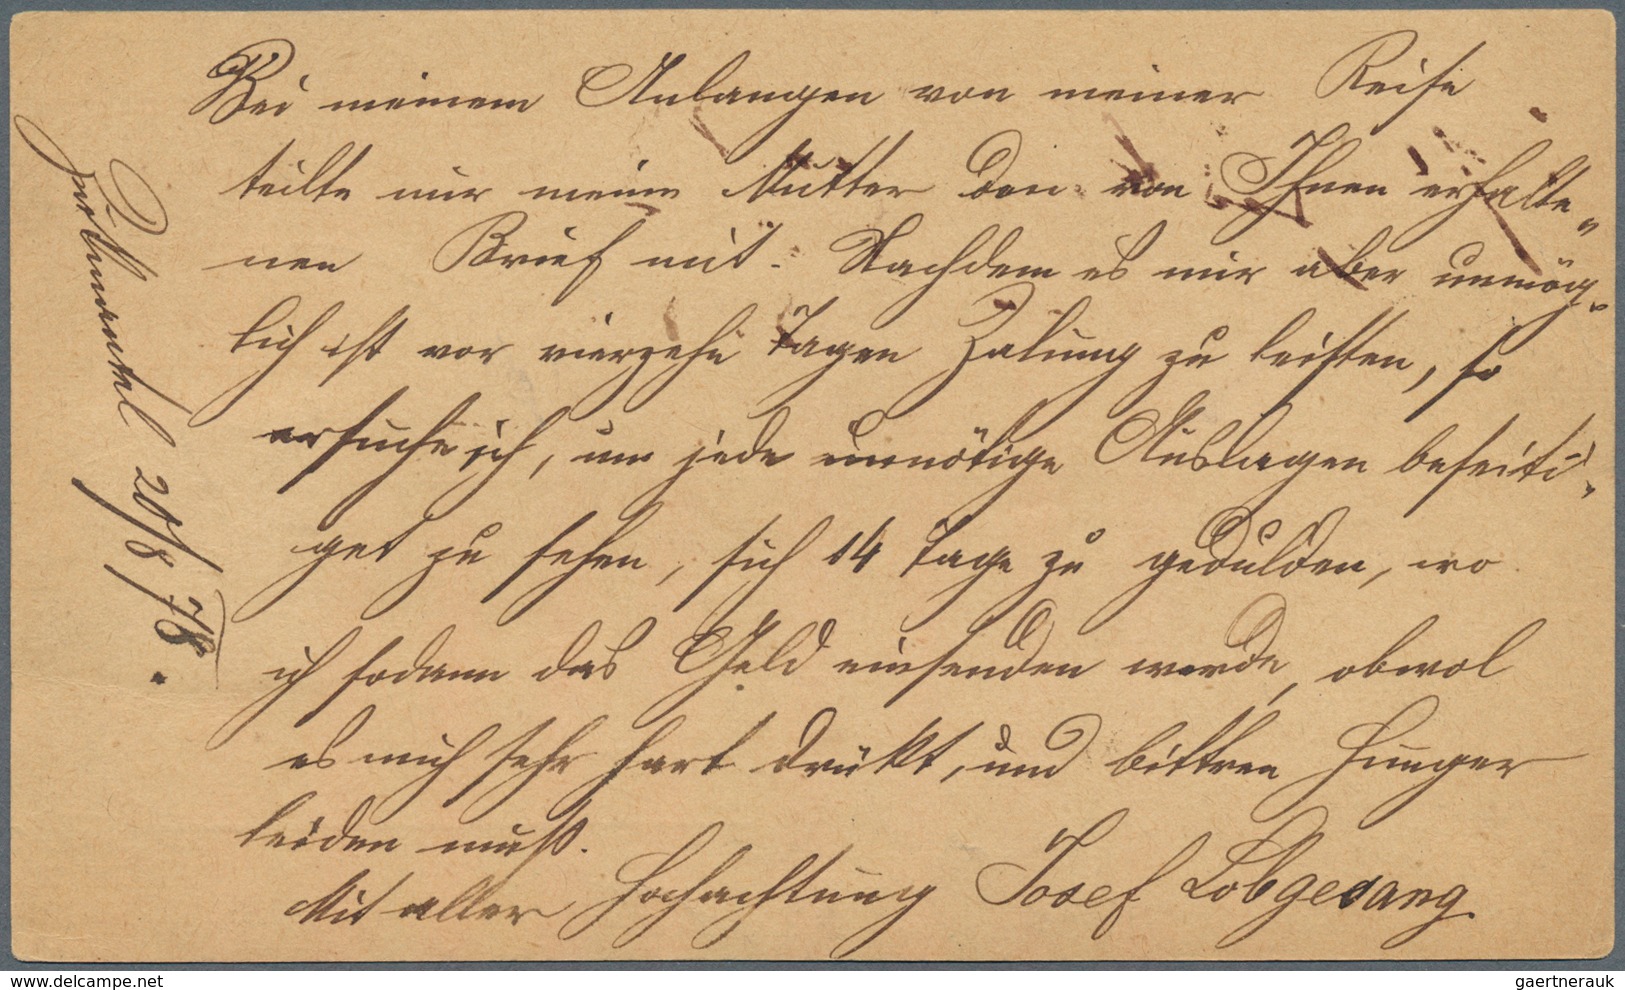 Bei meinem Anlangen von meiner Reise
teilte mir meine Mutter den von Ihnen erhalte„
nen Brief mit. Nachdem es mir aber unmög„
lich ist vor vierzehn Tagen Zalung zu leisten, so
ersuche ich, um jede unnötige Auslagen beseiti„
get zu sehen, sich 14 Tage zu gedulden, wo
ich sodann das Geld einsenden werde, obwol
es mich sehr hart drükt, und bittren Hunger
leiden muß.
Mit aller Hochachtung Josef Lobgesang.
20/8 78.
delcampe.net
gaertnerauk